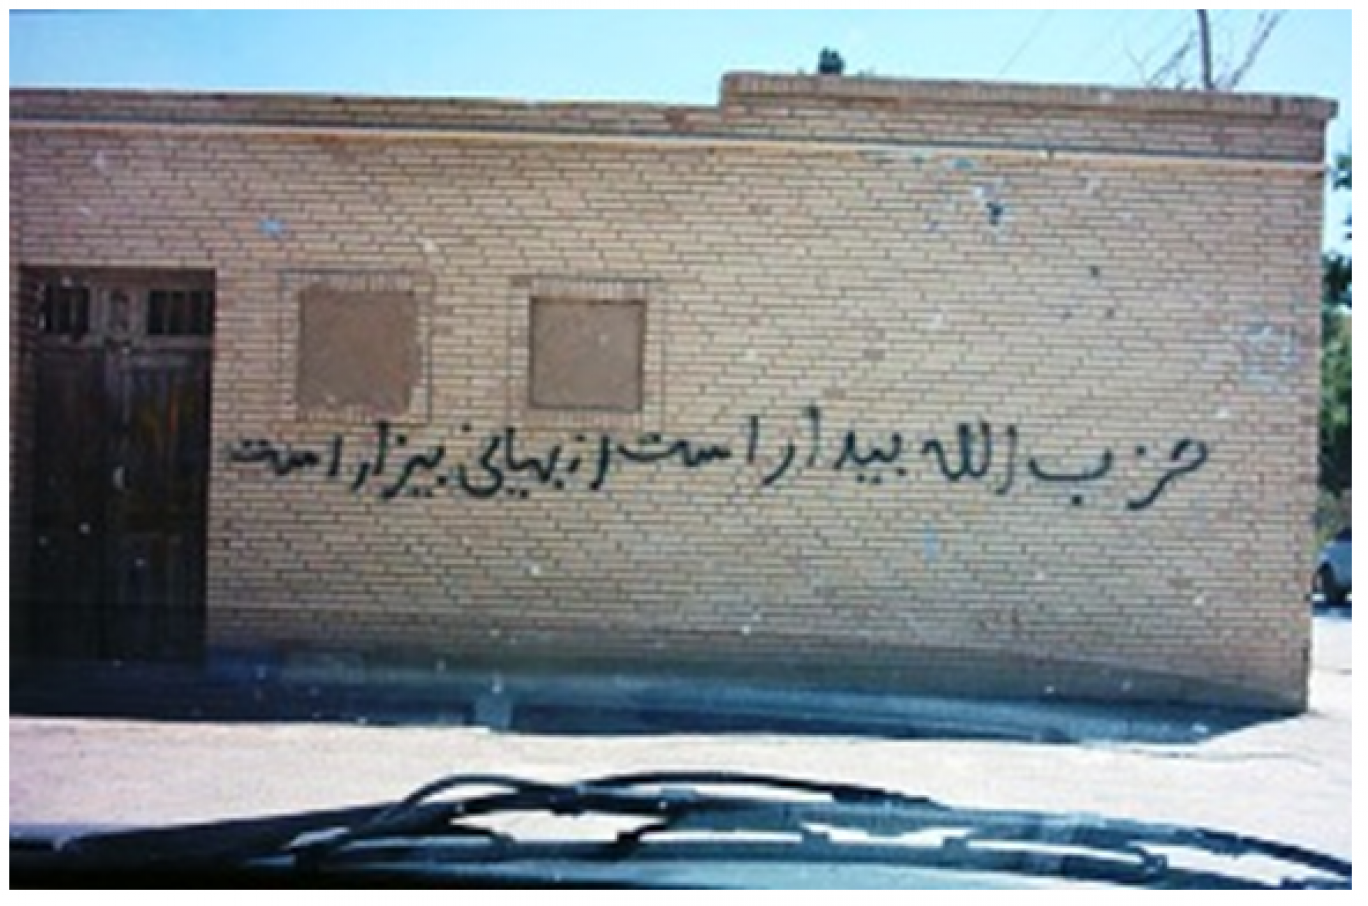 حزب الله بیدار است از بهایی بیزار است